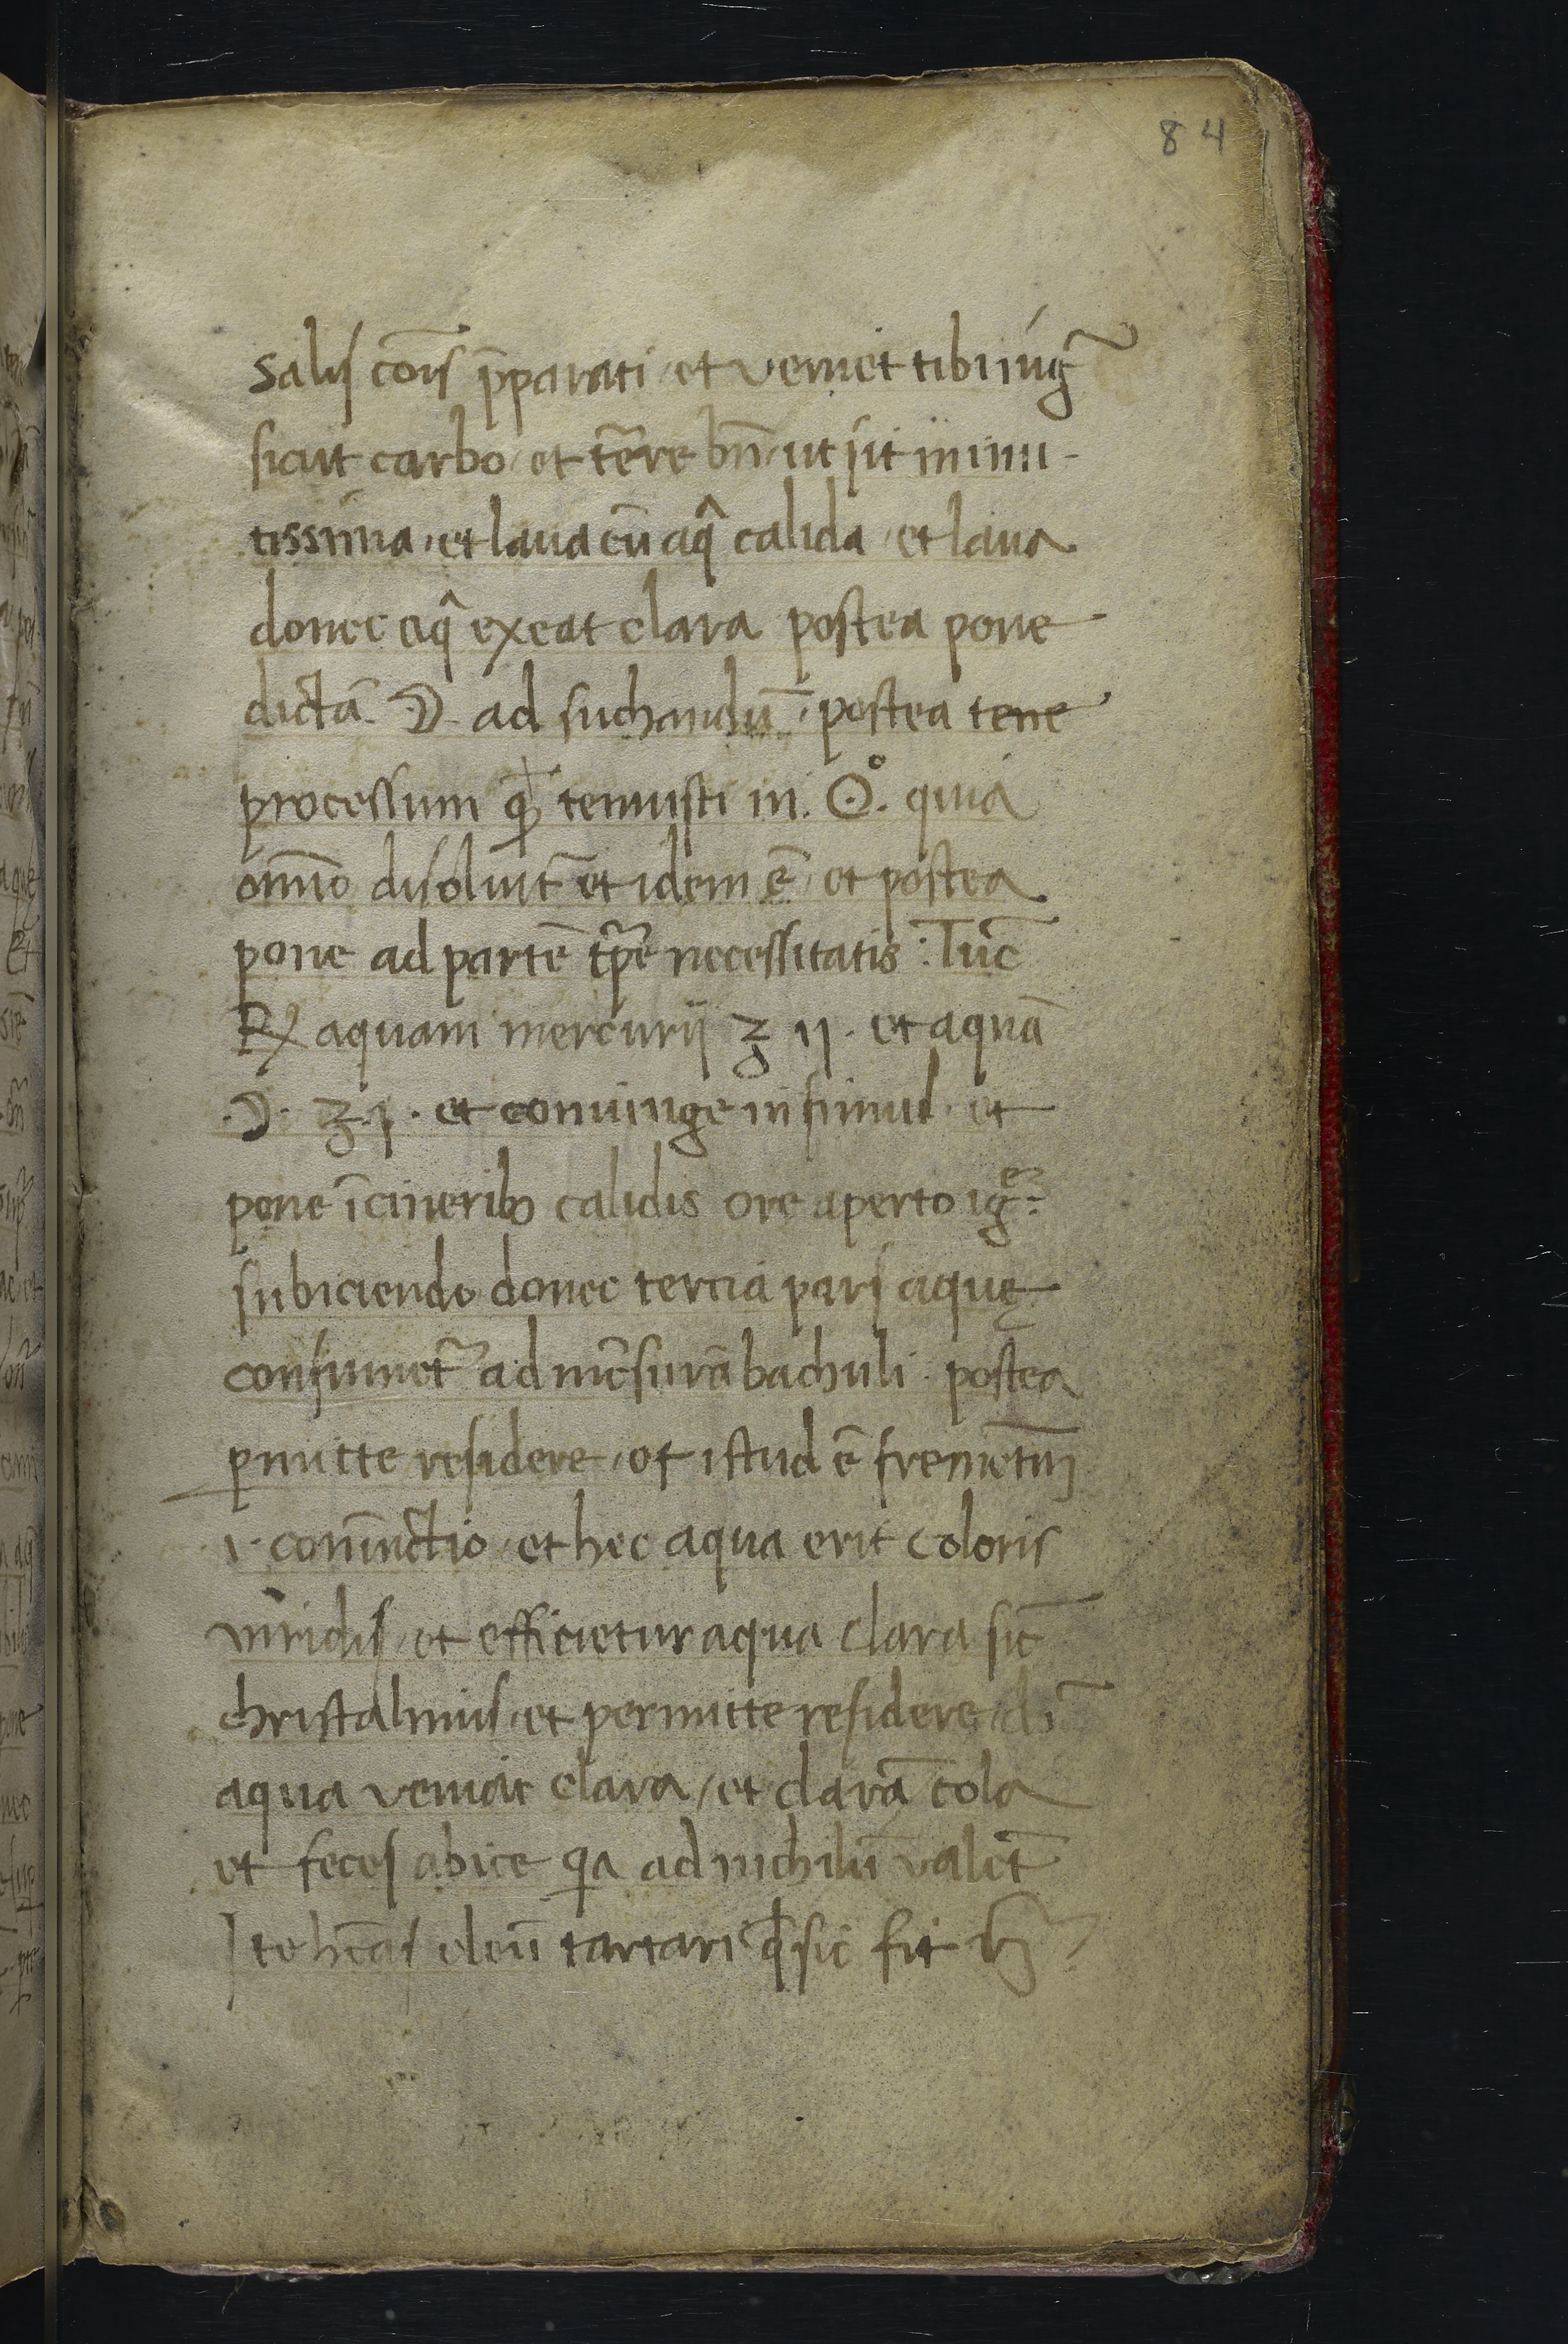 84
salis cōis p̄parati / et veniet tibi nig̃
sicut carbo / et tēre bn̄ / ut sit minu-
tissima / et lava cū aq̄ calida / et lava
donec aq̄ exeat clara postea pone
dictā ☽ ad suchandū / postea tene
processum qē tenuisti in ☉° quia
om̄īo disolvit̄ et idem ē / et postea
pone ad partē tp̄re necessitatis : Tūc
℞ aquam mercurij ℥ ij · et aquā
·☽· ℥ j · et coniunge in simul / et
pone ī cineribꝰ calidis ore aperto ig̃
subiciendo donec tercia pars aquę
consumet̃ ad mēsurā bachuli · postea
ꝑmitte residere / et istud ē fremētū
·i· coniūctio / et hec aqua erit coloris
viridis / et efficietur aqua clara sic̄
christalinus / et permitte residere / dū
aqua veniat clara / et clarā cola
et feces abice qa ad nichilū valēt
Ite hēas oleū tartari qd̄ sic fit